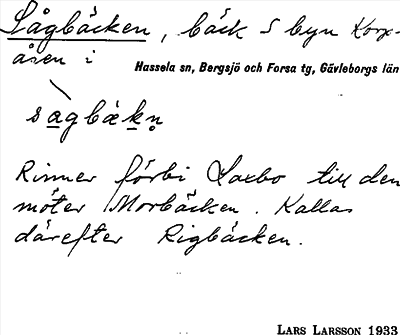 Sågbäcken, bäck S byn Korp-
åsen i
Hassela sn, Bergsjö och Forsa tg, Gävleborgs län
sagbäkn̥
Rinner förbi Saxbo till den
möter Morbäcken. Kallas
därefter Rigbäcken.
LARS LARSSON 1933